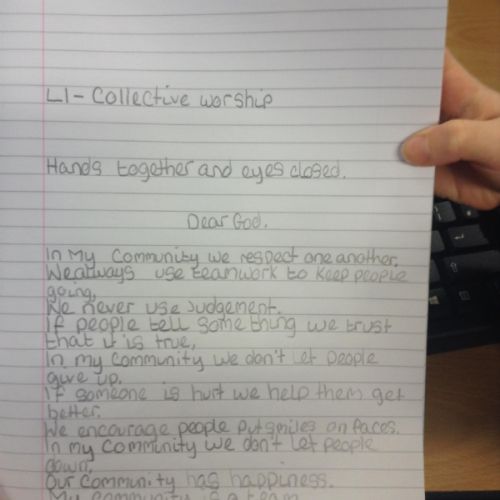 LI - Collective worship
Hands together and eyes closed.
Dear God.
In my Community we respect one another.
We always use teamwork to keep people
going,
We never use Judgement.
If people tell something we trust
that it is true,
In my Community we don't let people
give up.
If someone is hurt we help them get
better.
We encourage people put smiles on faces.
In my Community we don't let people
down,
Our Community has happiness.
My community is a team